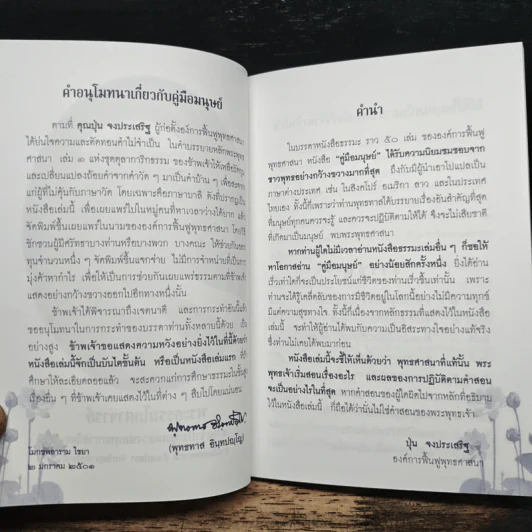 คำอนุโมทนาเกี่ยวกับคู่มือมนุษย์
ตามที่ คุณปุ่น จงประเสริฐ ผู้ก่อตั้งองค์การฟื้นฟูพุทธศาสนา
ได้ย่นใจความและตัดทอนคำไม่จำเป็น ในคำบรรยายหลักพระพุทธ
ศาสนา เล่ม ๑ แห่งชุดตุลาการิกธรรม ของข้าพเจ้าให้เหลือรัดกุม
และเปลี่ยนแปลงถ้อยคำจากคำวัด ๆ มาเป็นคำบ้าน ๆ เพื่อสะดวก
แก่ผู้ที่ไม่คุ้นกับภาษาวัด โดยเฉพาะคือภาษาบาลี ดังที่ปรากฏใน
หนังสือเล่มนี้ เพื่อเผยแพร่ไปในหมู่คนที่หาเวลาว่างได้ยาก แล้ว
จัดพิมพ์ขึ้นเผยแพร่ในนามขององค์การฟื้นฟูพุทธศาสนา โดยวิธี
ชักชวนผู้มีศรัทธาบางท่านหรือบางพวก บางคณะ ให้ช่วยกันออก
ทุนจำนวนหนึ่ง ๆ จัดพิมพ์ขึ้นแจกจ่าย ไม่มีการจำหน่ายที่เป็นการ
มุ่งค้าหากำไร เพื่อให้เป็นการช่วยกันเผยแพร่ธรรมตามที่ข้าพเจ้า
แสดงอย่างกว้างขวางออกไปอีกทางหนึ่งนั้น
ข้าพเจ้าได้พิจารณาถึงเจตนาดี และการกระทำอันนี้แล้ว
ขออนุโมทนาในการกระทำของบรรดาท่านทั้งหลายนี้ด้วย เป็น
อย่างสูง ข้าพเจ้าขอแสดงความหวังอย่างยิ่งไว้ในที่นี้ด้วยว่า
หนังสือเล่มนี้จักเป็นบันไดขั้นต้น หรือเป็นหนังสือเล่มแรก ที่ถ้า
ศึกษาให้ละเอียดลออแล้ว จะสะดวกแก่การศึกษาธรรมในขั้นสูง
เรื่องอื่น ๆ ที่ข้าพเจ้าเคยแสดงไว้ในที่ต่าง ๆ สืบไปโดยแน่นอน
(พุทธทาส อินทปญฺโญ)
โมกขพลาราม ไชยา
๒ มกราคม ๒๕๐๑
คำนำ
ในบรรดาหนังสือธรรมะ ราว ๕๐ เล่ม ขององค์การฟื้นฟู
พุทธศาสนา หนังสือ "คู่มือมนุษย์" ได้รับความนิยมชมชอบจาก
ชาวพุทธอย่างกว้างขวางมากที่สุด ถึงกับมีผู้นำเอาไปแปลเป็น
ภาษาต่างประเทศ เช่น ในสิงคโปร์ อเมริกา ลาว และในประเทศ
ไทยเอง ทั้งนี้ก็เพราะว่าท่านพุทธทาสได้บรรยายเรื่องอันสำคัญที่สุด
ที่มนุษย์ทุกคนควรจะรู้ และควรจะปฏิบัติตามให้ได้ จึงจะไม่เสียชาติ
ที่เกิดมาเป็นมนุษย์ พบพระพุทธศาสนา
หากท่านผู้ใดไม่มีเวลาอ่านหนังสือธรรมะเล่มอื่น ๆ ก็ขอให้
หาโอกาสอ่าน "คู่มือมนุษย์" อย่างน้อยสักครั้งหนึ่ง ยิ่งได้อ่าน
เร็วเท่าใดก็จะเป็นประโยชน์แก่ชีวิตของท่านเร็วขึ้นเท่านั้น เพราะ
ท่านจะได้รู้เคล็ดลับของการมีชีวิตอยู่ในโลกนี้อย่างไม่มีความทุกข์
มีแต่ความสุขทางใจ ทั้งนี้ก็เนื่องจากหลักธรรมที่แสดงไว้ในหนังสือ
เล่มนี้ จะทำให้ผู้อ่านได้พบกับความเป็นอิสระทางใจอย่างแท้จริง
ซึ่งท่านไม่เคยได้พบมาก่อน
หนังสือเล่มนี้จะชี้ให้เห็นด้วยว่า พุทธศาสนาที่แท้นั้น พระ
พุทธเจ้าเริ่มสอนเรื่องอะไร และผลของการปฏิบัติตามคำสอน
จะเป็นอย่างไรในที่สุด หากคำสอนของผู้ใดผิดไปจากหลักที่อธิบาย
ไว้ในหนังสือเล่มนี้ ก็ถือได้ว่านั่นไม่ใช่คำสอนของพระพุทธเจ้า.
ปุ่น จงประเสริฐ
องค์การฟื้นฟูพุทธศาสนา